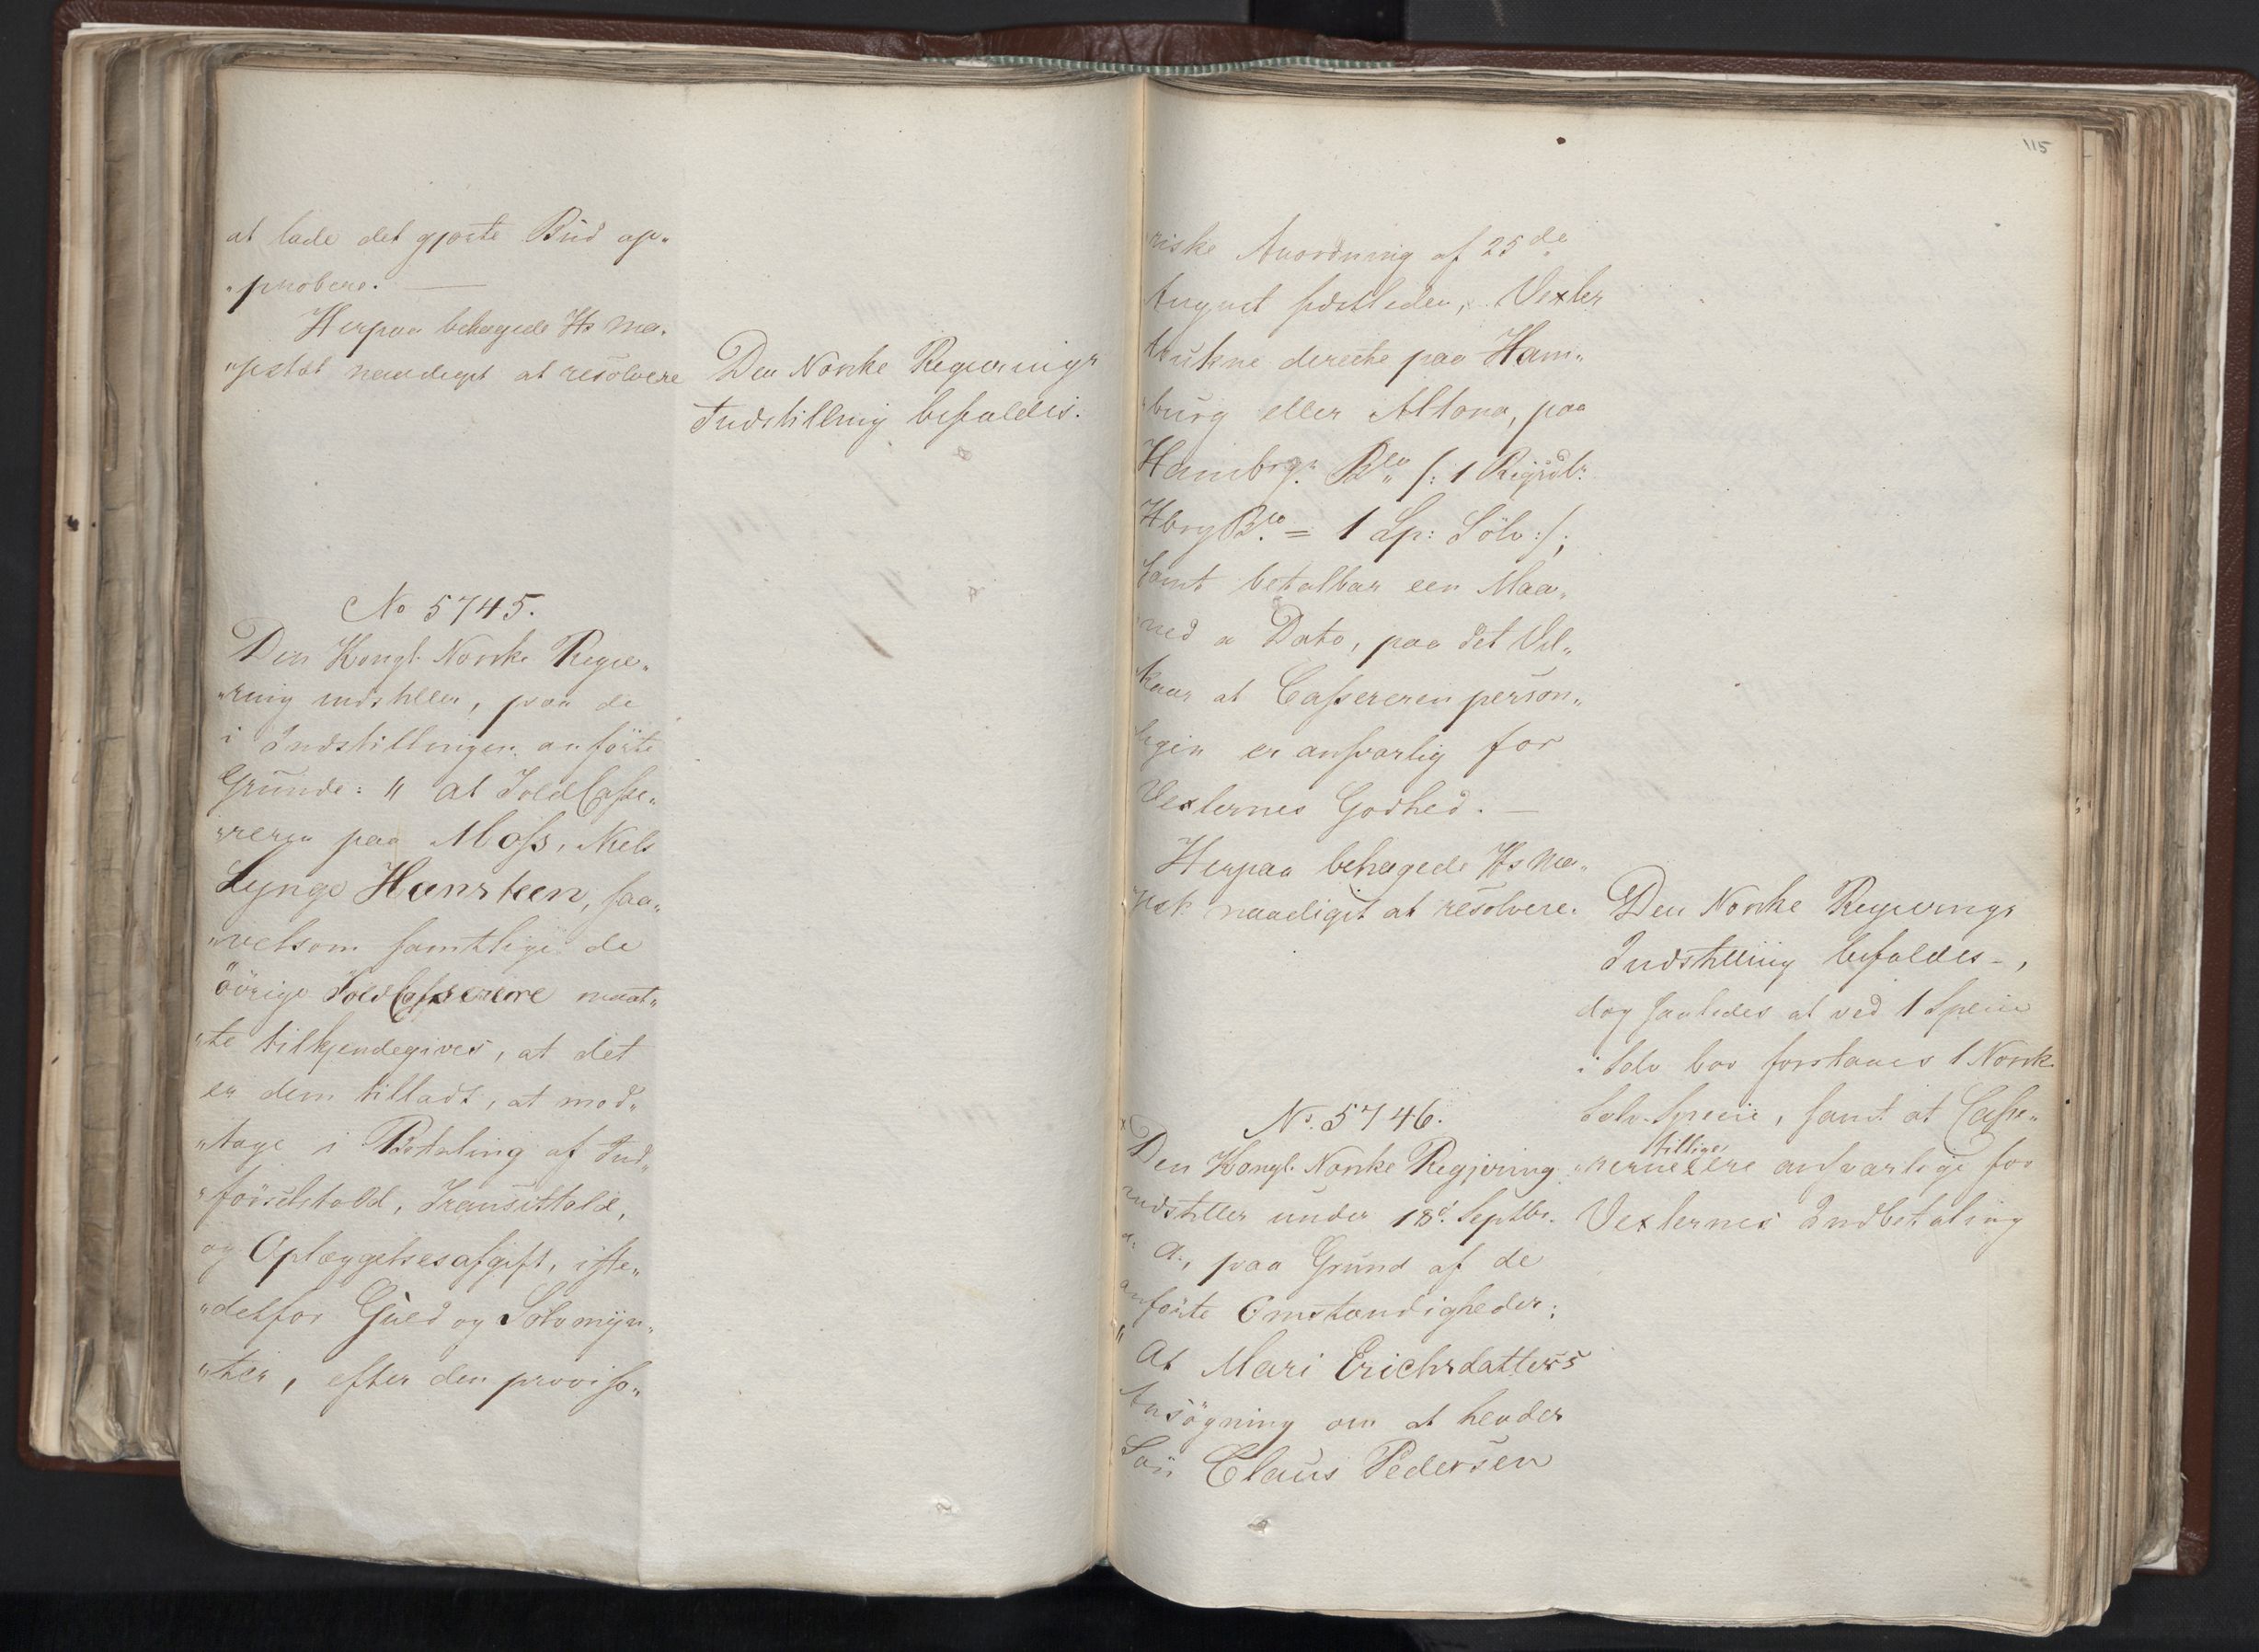 at lade det gjorte Bud ap„
„probere. —
Herpaa behagede Hs Ma„
„jestæt naadigst at resolvere
Den Norske Regierings
Indstilling bifaldes.
No 5745.
Den Kongl. Norske Regie„
„ring indstiller, paa de
i Indstillingen anförte
Grunde: „ at ToldCasse„
„reren paa Moss, Niels
Lynge Hansteen, saa„
„velsom samtlige de
övrige ToldCasserere maat„
„te tilkjendegives, at det
er dem tilladt, at mod„
„tage i Betaling af Ind„
„förselstold, Transittold,
og Oplæggelsesafgift, iste„
„detfor Guld og Sölvmyn„
„ter, efter den proviso„
115
„riske Anordning af 25de
August sidstleden, Vexler
trukne directe paa Ham„
„burg eller Altona, paa
Hambrgr Bco /: 1 Rigsdlr
Hbrg Bco = 1 Sp: Sölv :/,
samt betalbar een Maa„
„ned a Dato, paa det Vil„
„kaar at Cassereren person„
„ligen er ansvarlig for
Vexlernes Godhed. —
Herpaa behagede Hs Ma„
„jest naadigst at resolvere.
Den Norske Regierings
Indstilling bifaldes –,
dog saaledes at ved 1 Specie
i Sölv bör forstaaes 1 Norsk
Sölv-Specie, samt at Casse„
tillige
„rerne ere ansvarlige for
Vexlernes Indbetaling
No. 5746.
Den Kongl. Norske Regjering
indstiller under 18d. Septbr.
d. A., paa Grund af de
anförte Omstændigheder:
„ At Mari Erichsdatters
Ansögning om at hendes
Sön Claus Pedersen